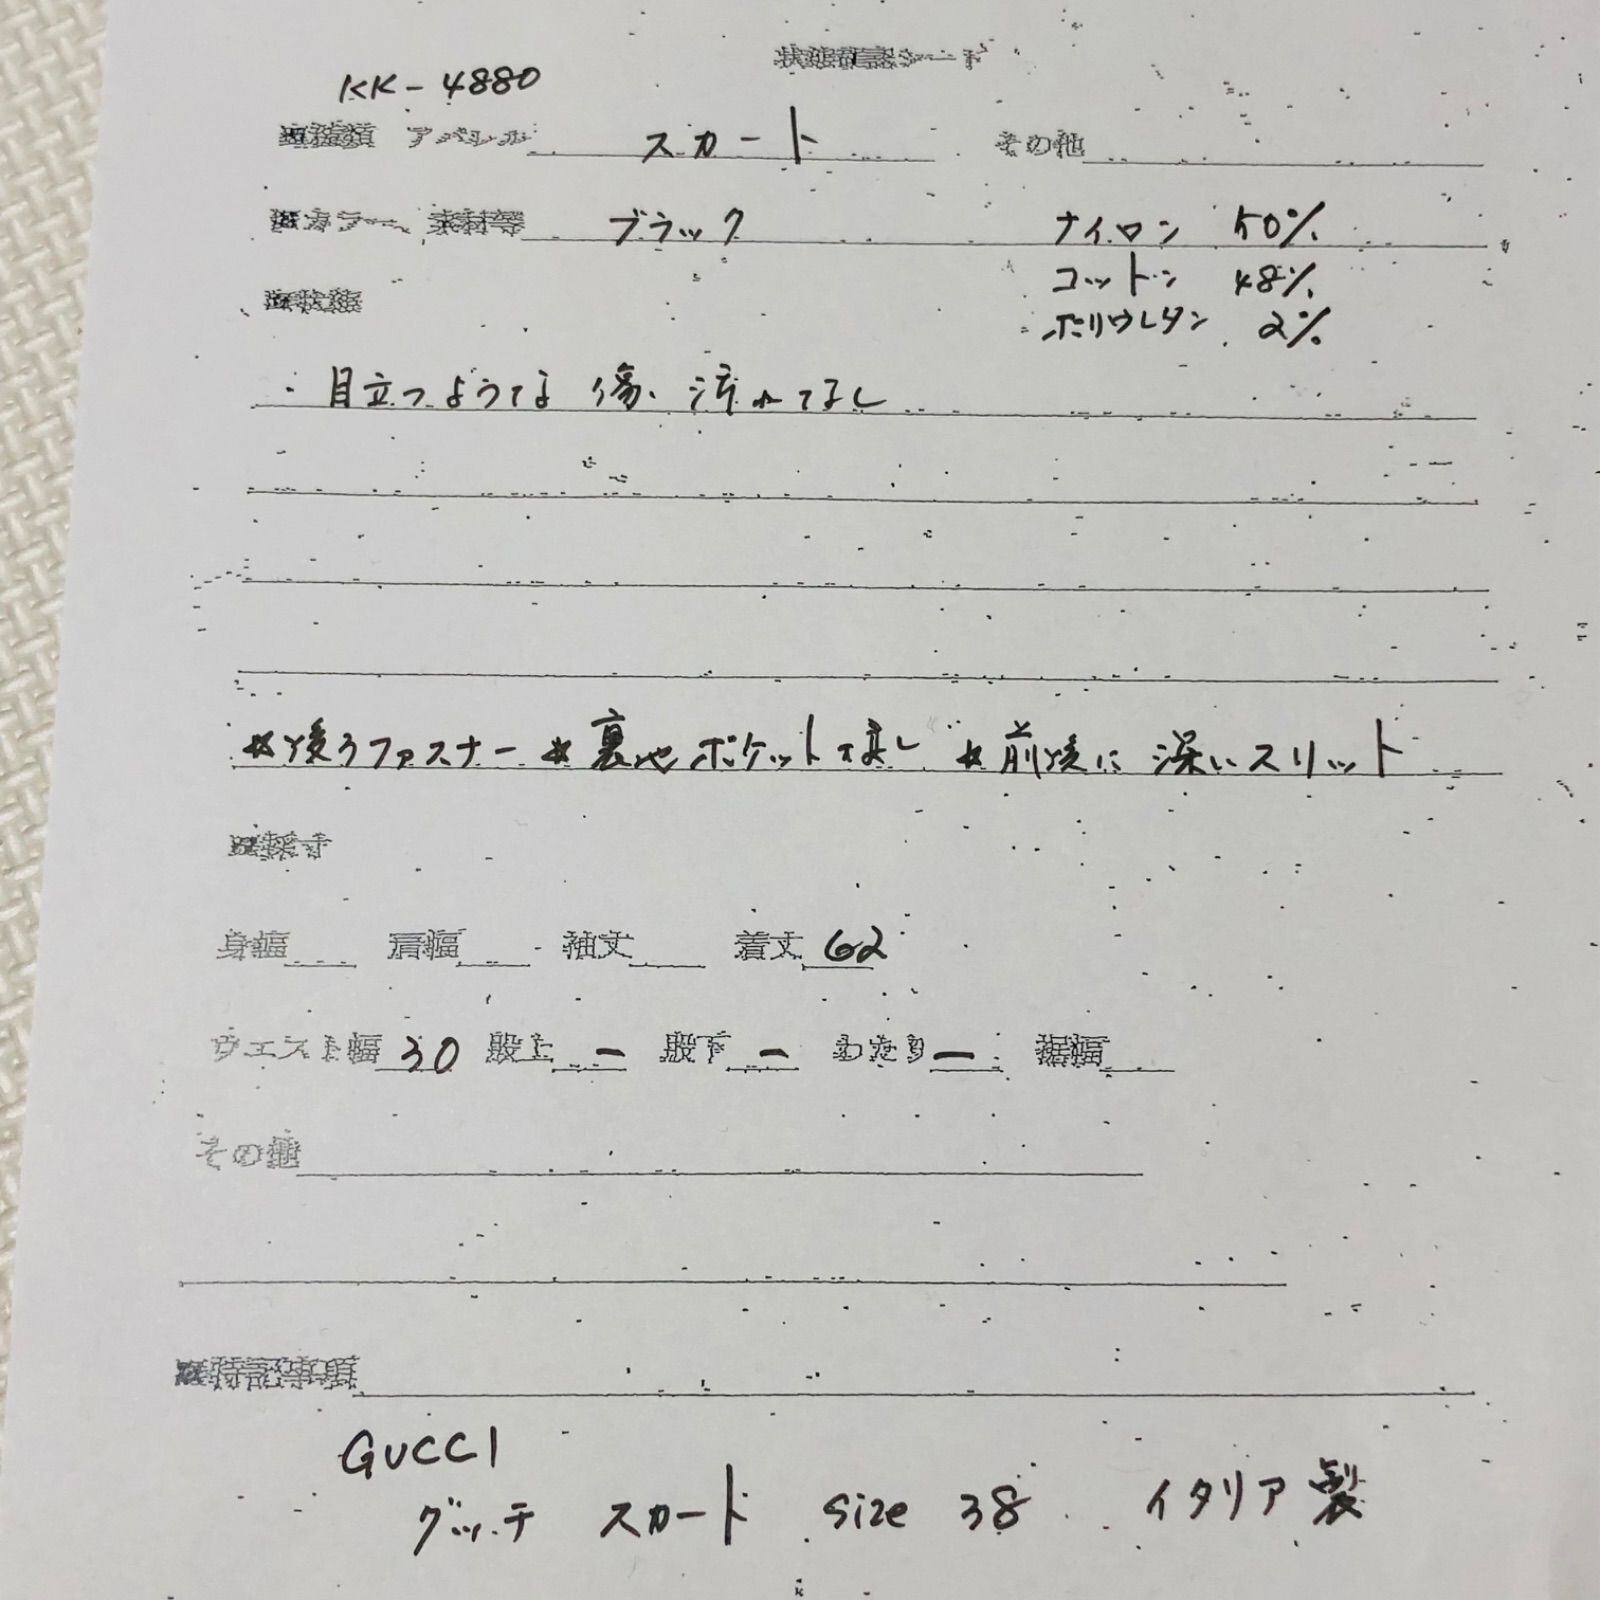 状態確認シート
KK-4880
■種類 アパレル スカート その他
■カラー、素材等 ブラック ナイロン 50%
コットン 48%
ポリウレタン 2%
■状態
・目立つような傷、汚れなし
*後ろファスナー *裏地ポケット無し *前後に深いスリット
■採寸
身幅 肩幅 袖丈 着丈 62
ウエスト幅 30 股上 ー 股下 ー わたり ー 裾幅
その他
■特記事項
GUCCI
グッチ スカート size 38 イタリア製